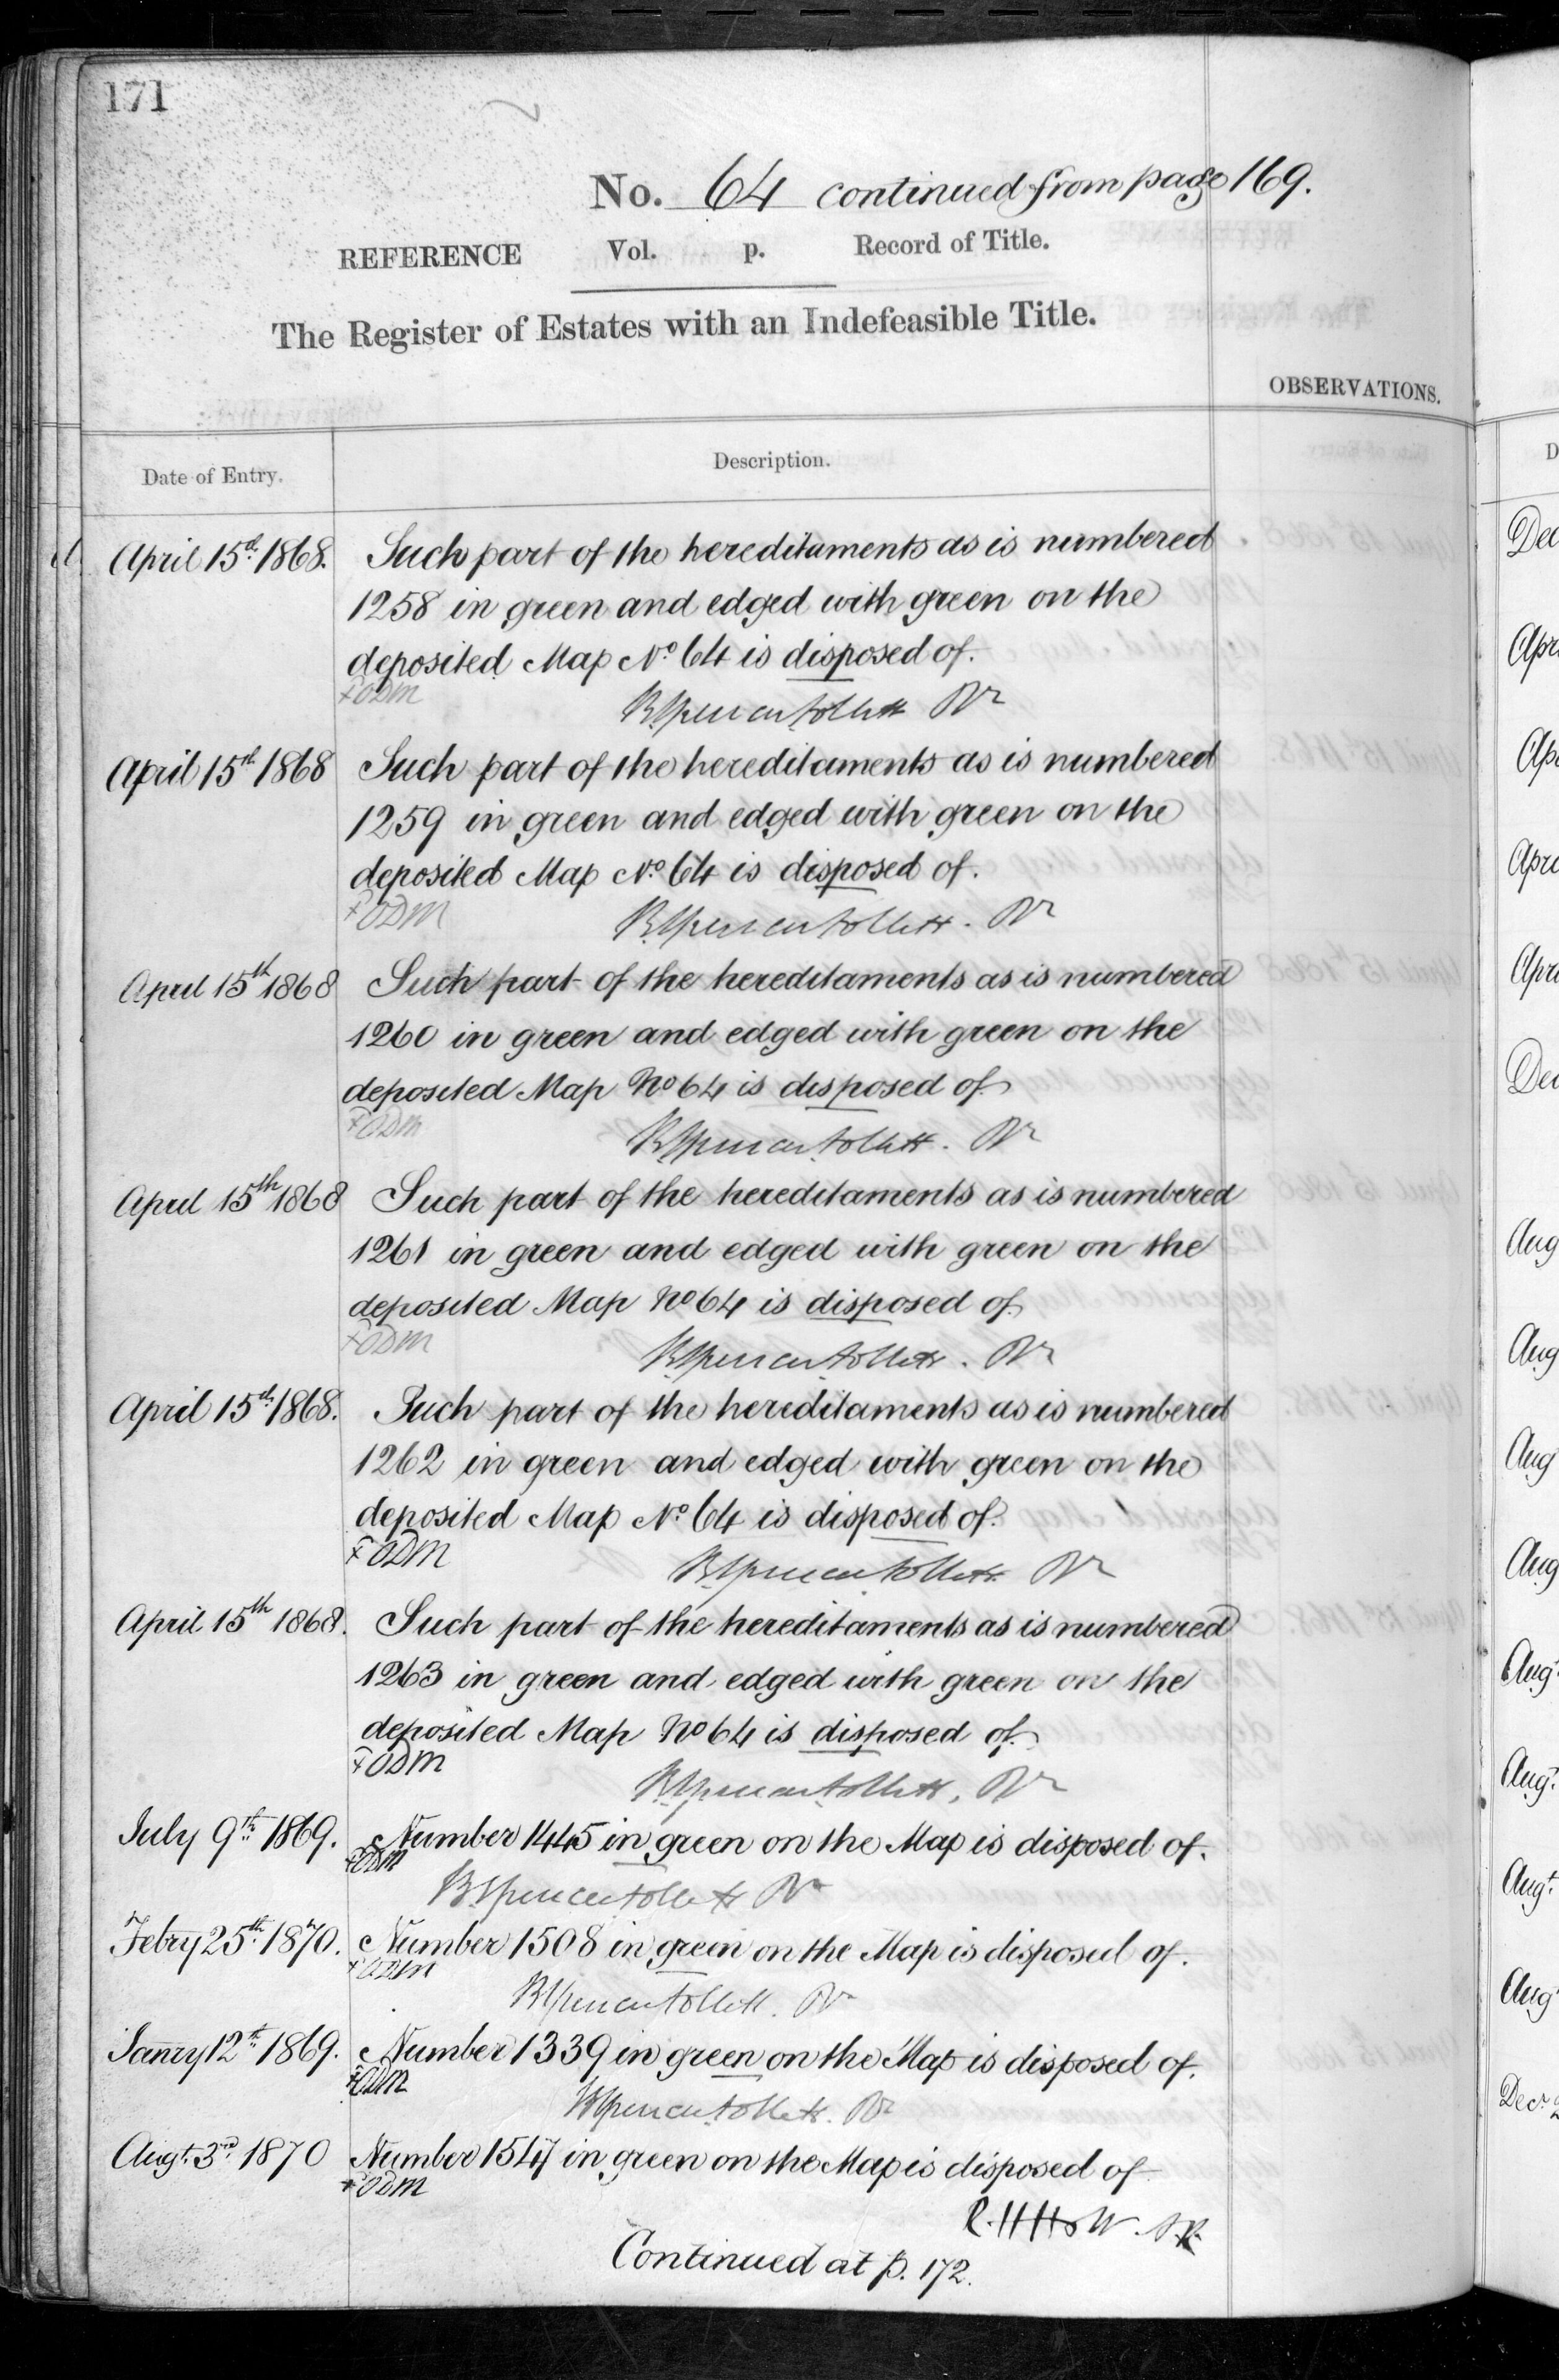 171
No. 64 continued from page 169.
REFERENCE Vol. p. Record of Title.
The Register of Estates with an Indefeasible Title.
OBSERVATIONS.
Date of Entry. Description.
April 15th 1868. Such part of the hereditaments as is numbered
1258 in green and edged with green on the
deposited Map No 64 is disposed of.
ODM
BSpencer Follett Rr
April 15th 1868 Such part of the hereditaments as is numbered
1259 in green and edged with green on the
deposited Map No 64 is disposed of.
ODM
BSpencer Follett. Rr
April 15th 1868 Such part of the hereditaments as is numbered
1260 in green and edged with green on the
deposited Map No 64 is disposed of
ODM
BSpencer Follett. Rr
April 15th 1868 Such part of the hereditaments as is numbered
1261 in green and edged with green on the
deposited Map No 64 is disposed of
ODM
BSpencer Follett. Rr
April 15th 1868. Such part of the hereditaments as is numbered
1262 in green and edged with green on the
deposited Map No 64 is disposed of.
ODM
BSpencer Follett Rr
April 15th 1868. Such part of the hereditaments as is numbered
1263 in green and edged with green on the
deposited Map No 64 is disposed of.
ODM
BSpencer Follett, Rr
July 9th 1869. Number 1445 in green on the Map is disposed of.
ODM
BSpencer Follett Rr
Febry 25th 1870. Number 1508 in green on the Map is disposed of.
ODM
BSpencer Follett. Rr
Janry 12th 1869. Number 1339 in green on the Map is disposed of.
ODM
BSpencer Follett. Rr
Augt. 3rd 1870 Number 1547 in green on the Map is disposed of
ODM
R. H Holt
Continued at p. 172.